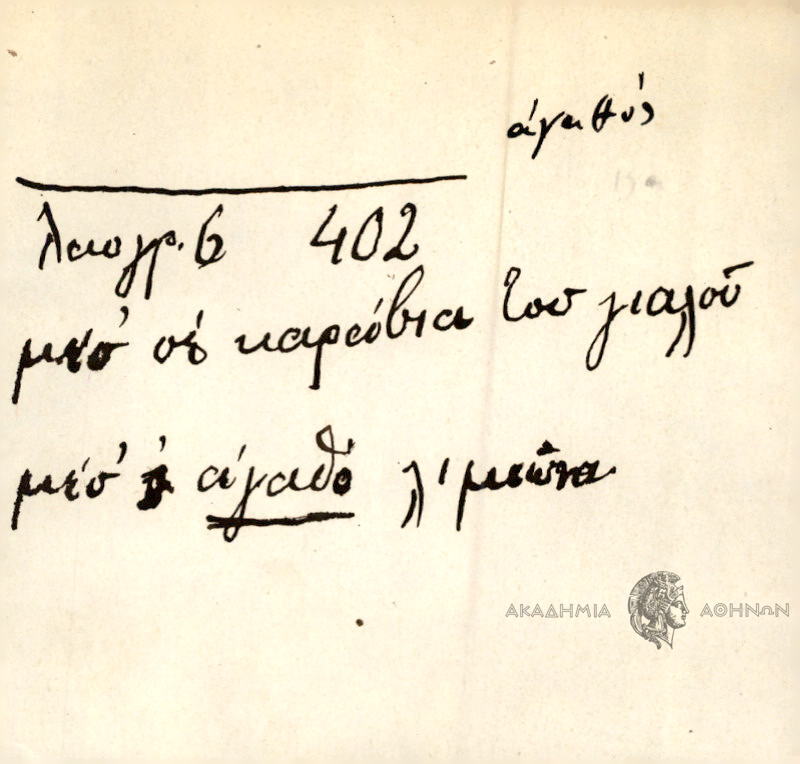 ἀγαθός
Λαογρ. 6 402
μεσ' σὲ καράβια του γιαλοῦ
μέσ' σ' ἀγαθὸ λ'μιῶνα
ΑΚΑΔΗΜΙΑ ΑΘΗΝΩΝ